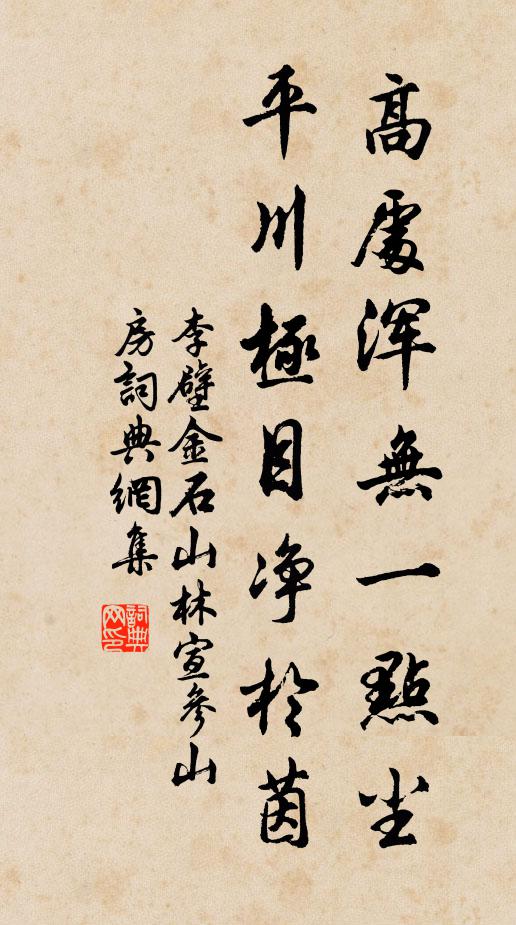 高處渾無一點尘
平川極目净於茵
李壁金石山林宣參山
房詞典網集
詞典
网印